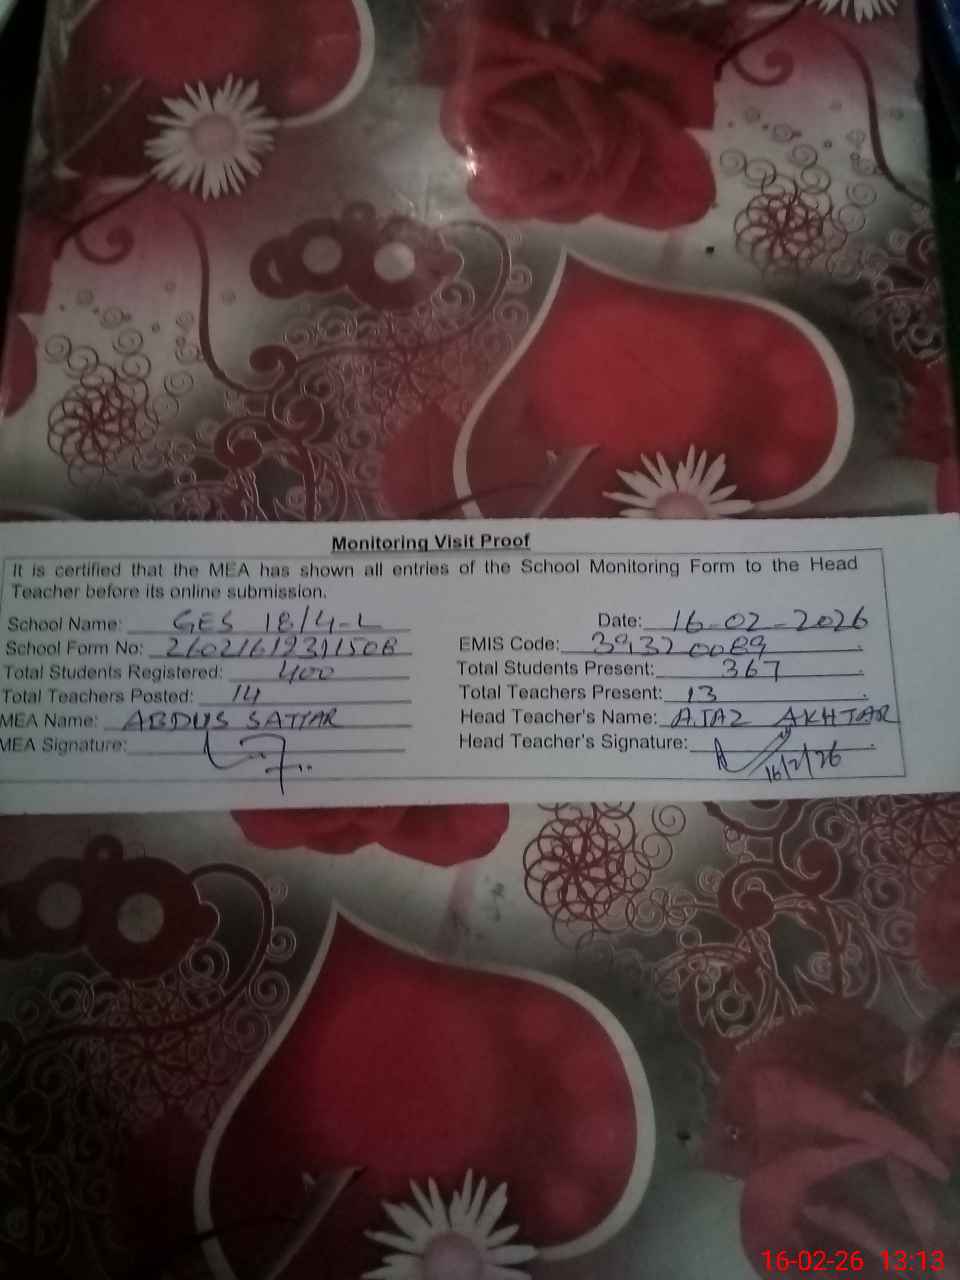 Monitoring Visit Proof
It is certified that the MEA has shown all entries of the School Monitoring Form to the Head
Teacher before its online submission.
School Name: GES 18/4-L Date: 16-02-2026
School Form No: EMIS Code: 39320089
Total Students Registered: 400 Total Students Present: 367
Total Teachers Posted: 14 Total Teachers Present: 13
MEA Name: ABDUS SATTAR Head Teacher's Name: AJAZ AKHTAR
MEA Signature: Head Teacher's Signature:
16/2/26
16-02-26 13:13